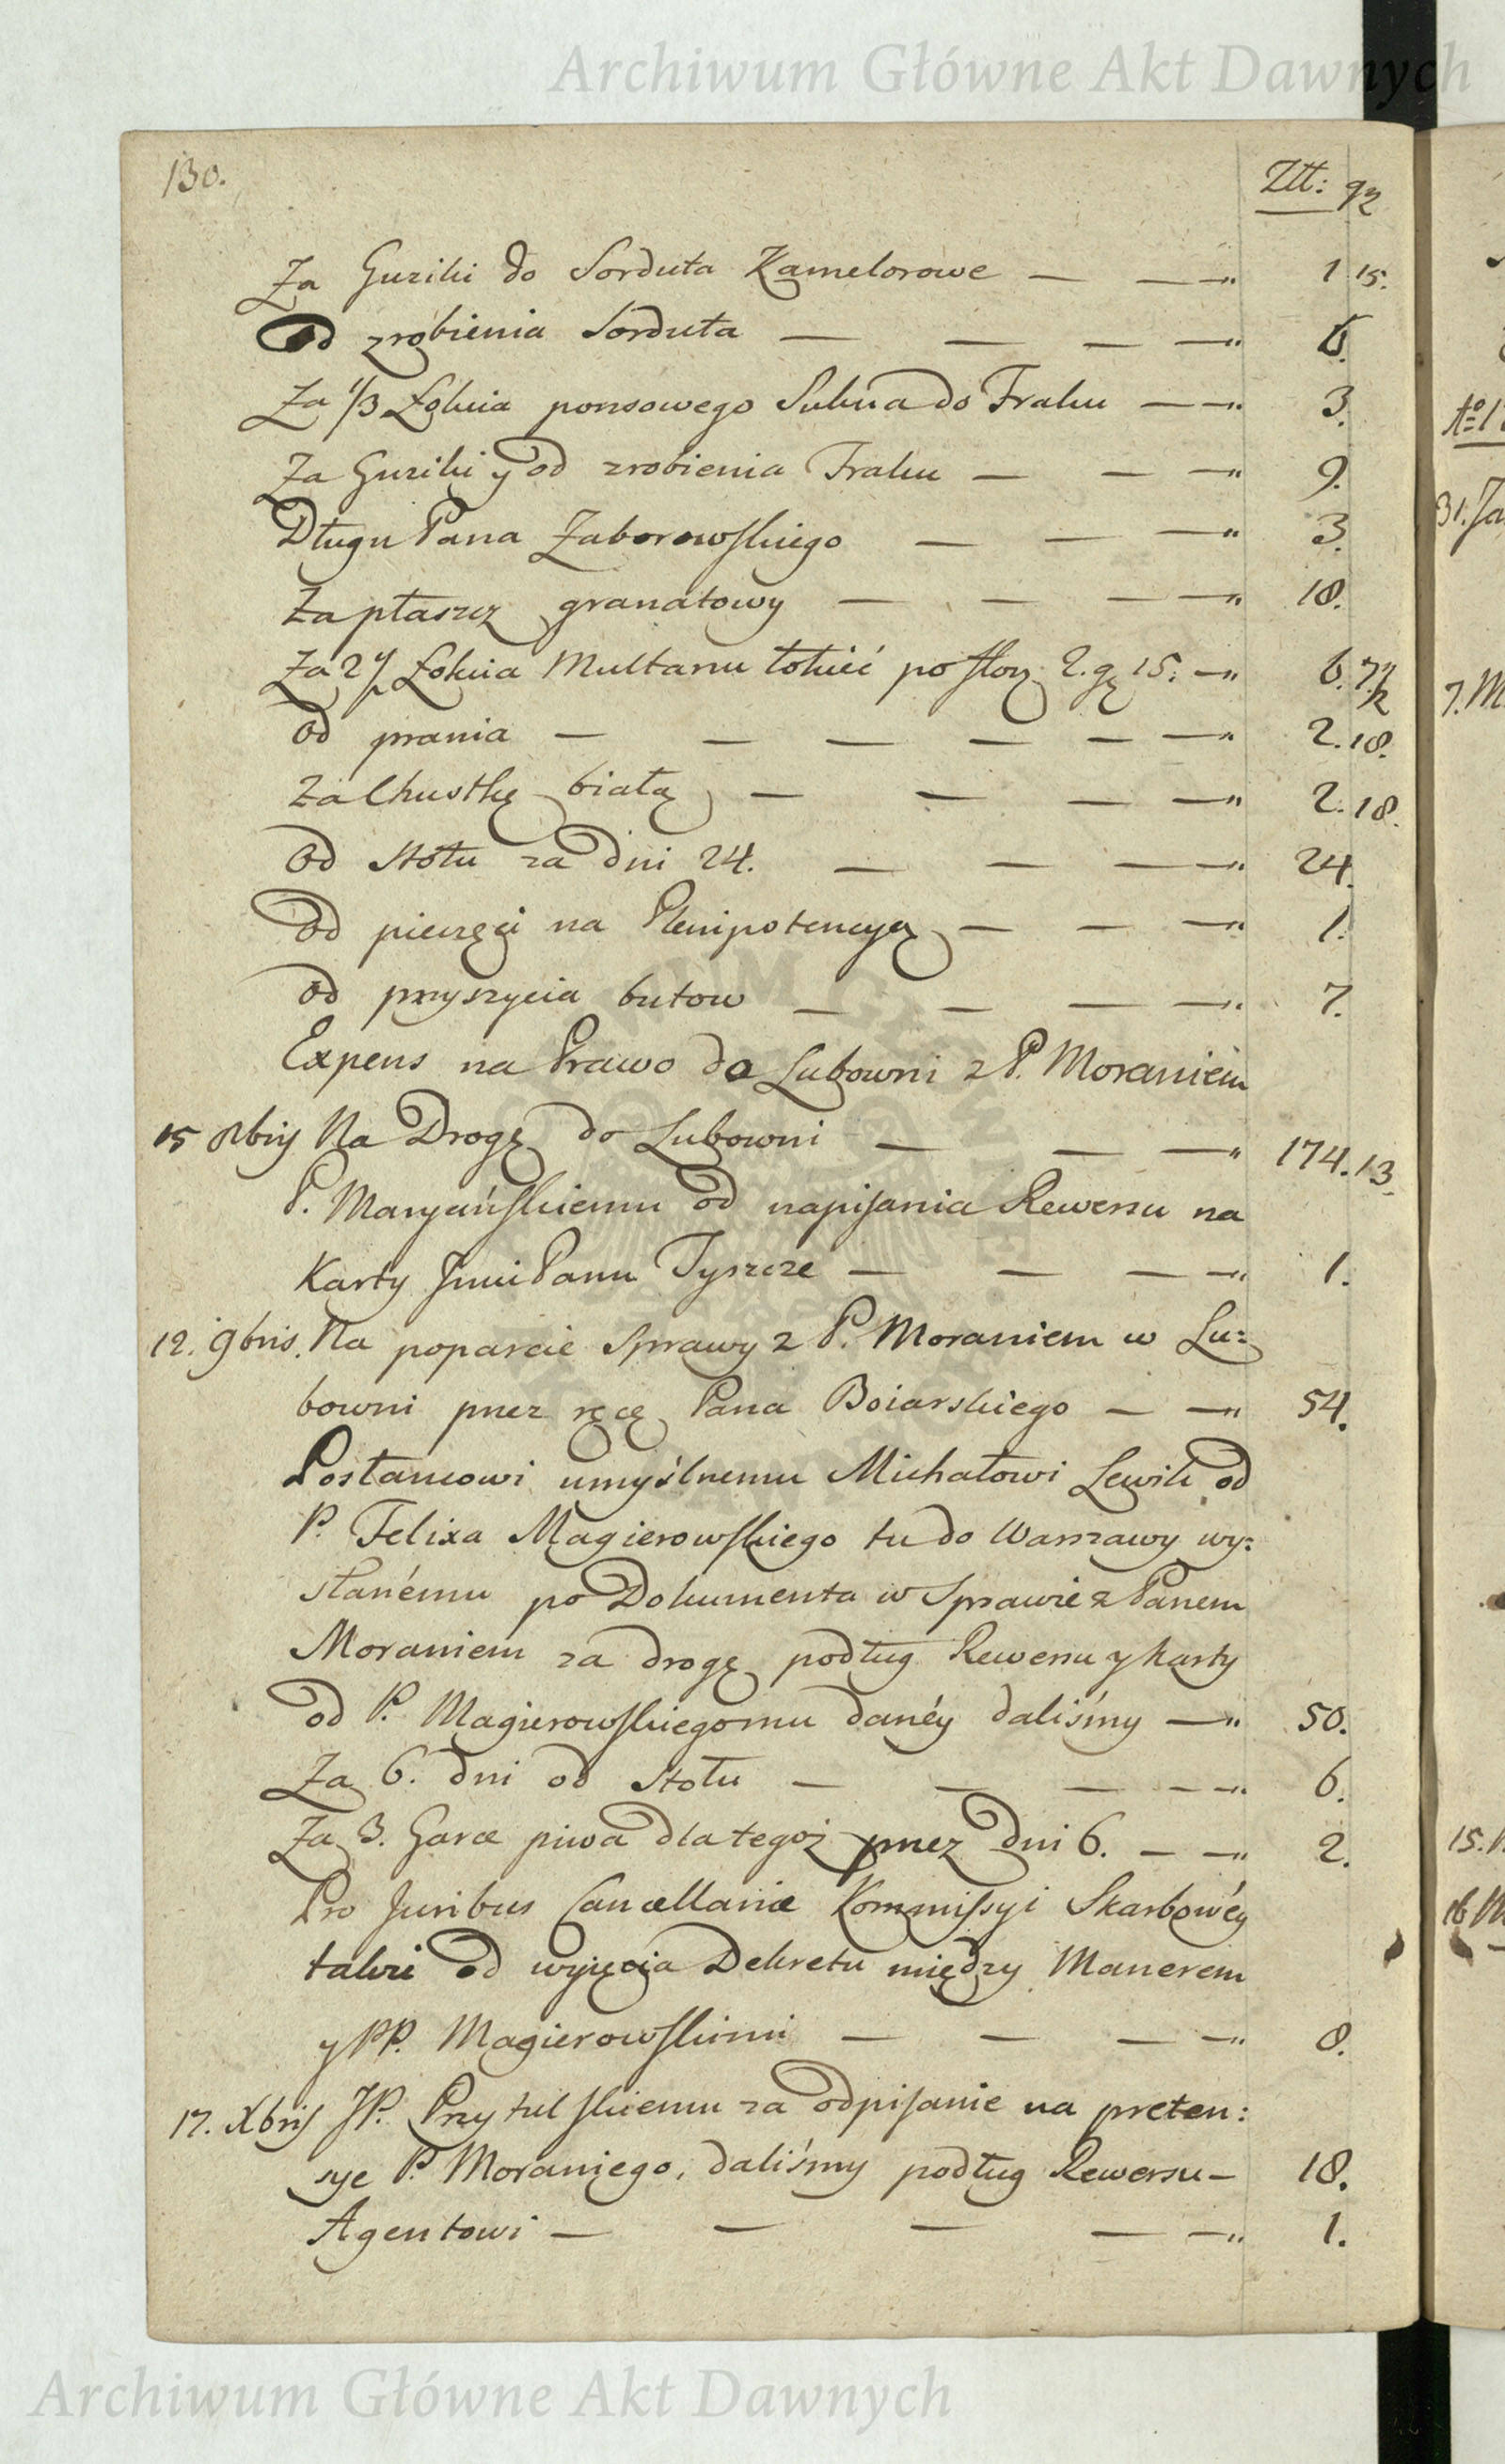 Archiwum Główne Akt Dawnych
130.
Złł: gr
Za Guziki do Sorduta Kamelorowe — — —" 1 15.
Od zrobienia Sorduta — — — —" 6.
Za 1/3 Łokcia ponsowego Sukna do Fraku — —" 3.
Za Guziki y od zrobienia Fraku — — —" 9.
Długu Pana Zaborowskiego — — —" 3.
Za płaszcz granatowy — — — —" 18.
Za 2 1/2 Łokcia Multanu łokieć po flor. 2. gr 15. —" 6. 7 1/2
od prania — — — — — —" 2. 18.
Za Chustkę białą — — — —" 2. 18.
Od stołu za dni 24. — — — —" 24.
Od pieczęci na Plenipotencyą — — —" 1.
od przyszycia butow — — — —" 7.
Expens na Prawo do Lubowni z P. Moraniem
15 8bris Na Drogę do Lubowni — — —" 174. 13.
P. Maryańskiemu od napisania Rewersu na
Karty Jmci Panu Tyszcze — — — —" 1.
12. 9bris. Na poparcie Sprawy z P. Moraniem w Lu:
bowni przez ręcę Pana Boiarskiego — —" 54.
Posłancowi umyślnemu Michałowi Lewik od
P. Felixa Magierowskiego tu do Warszawy wy:
słanému po Dokumenta w Sprawie z Panem
Moraniem za drogę podług Rewersu y karty
od P. Magierowskiegomu danéy daliśmy —" 50.
Za 6. dni od stołu — — — — —" 6.
Za 3. Garce piwa dla tegoż przez dni 6. — —" 2.
Pro Juribus Cancellariæ Kommissyi Skarbowéy
także od wyięcia Dekretu między Manerem
y PP. Magierowskimi — — — —" 8.
17. Xbris JP. Przytulskiemu za odpisanie na preten:
sye P. Moraniego, daliśmy podług Rewersu — 18.
Agentowi — — — — —" 1.
Archiwum Główne Akt Dawnych